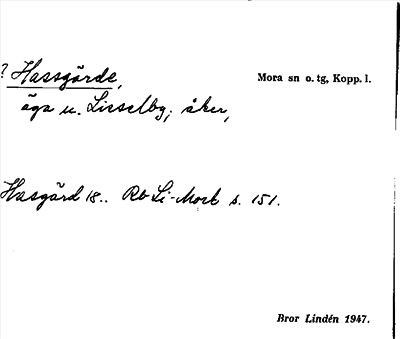 ? Hassgärde,
Mora sn o. tg, Kopp. l.
äga u. Lisselby; åker,
Hasgärd 18.. Rb Li-Mork s. 151.
Bror Lindén 1947.